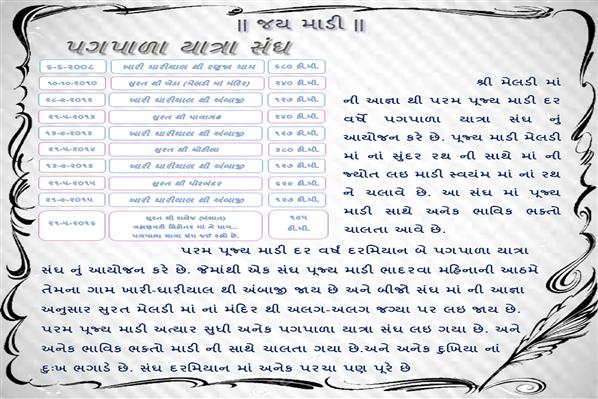 || જય માડી ||
પગપાળા યાત્રા સંઘ
૬-૬-૨૦૦૮ ખારી ધારીયાલ થી રણુજા ધામ ૬૮૦ કી.મી.
૧૦-૧૦-૨૦૧૦ સુરત થી ખેડા (મેલડી માં મંદિર) ૨૪૦ કી.મી.
૨૮-૯-૨૦૧૨ ખારી ધારીયાલ થી અંબાજી ૧૨૭ કી.મી.
૨૧-૫-૨૦૧૩ સુરત થી પાવાગઢ ૨૪૦ કી.મી.
૧૩-૯-૨૦૧૩ ખારી ધારીયાલ થી અંબાજી ૧૨૭ કી.મી.
૨૧-૫-૨૦૧૪ સુરત થી ચોટીલા ૩૮૦ કી.મી.
૧૩-૯-૨૦૧૩ ખારી ધારીયાલ થી અંબાજી ૧૨૭ કી.મી.
૨૧-૫-૨૦૧૫ સુરત થી પોરબંદર ૬૨૯ કી.મી.
૨૧-૯-૨૦૧૫ ખારી ધારીયાલ થી અંબાજી ૧૨૭ કી.મી.
૨૧-૫-૨૦૧૬ સુરત થી રાલેજ (ખંભાત) ૧૯૫ કી.મી.
વહાણવટી સિકોતર માં ને ધામ...
પગપાળા યાત્રા સંઘ જઈ રહી છે.
શ્રી મેલડી માં
ની આજ્ઞા થી પરમ પૂજ્ય માડી દર
વર્ષે પગપાળા યાત્રા સંઘ નું
આયોજન કરે છે. પૂજ્ય માડી મેલડી
માં નાં સુંદર રથ ની સાથે માં ની
જ્યોત લઇ માડી સ્વયંમ માં નાં રથ
ને ચલાવે છે. આ સંઘ માં પૂજ્ય
માડી સાથે અનેક ભાવિક ભક્તો
ચાલતા આવે છે.
પરમ પૂજ્ય માડી દર વર્ષ દરમિયાન બે પગપાળા યાત્રા
સંઘ નું આયોજન કરે છે. જેમાંથી એક સંઘ પૂજ્ય માડી ભાદરવા મહિનાની આઠમે
તેમના ગામ ખારી-ધારીયાલ થી અંબાજી જાય છે અને બીજો સંઘ માં ની આજ્ઞા
અનુસાર સુરત મેલડી માં નાં મંદિર થી અલગ-અલગ જગ્યા પર લઇ જાય છે.
પરમ પૂજ્ય માડી અત્યાર સુધી અનેક પગપાળા યાત્રા સંઘ લઇ ગયા છે. અને
અનેક ભાવિક ભક્તો માડી ની સાથે ચાલતા ગયા છે.અને અનેક દુખિયા નાં
દુઃખ ભગાડે છે. સંઘ દરમિયાન માં અનેક પરચા પણ પૂરે છે